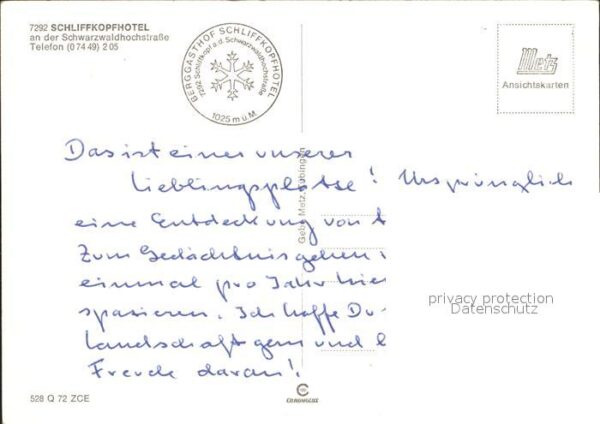 7292 SCHLIFFKOPFHOTEL
an der Schwarzwaldhochstraße
Telefon (07449) 205
BERGGASTHOF SCHLIFFKOPFHOTEL
7292 Schliffkopf a.d. Schwarzwaldhochstraße
1025 m ü.M
Metz
Ansichtskarten
Das ist einer unserer
Lieblingsplätze! Ursprünglich
eine Entdeckung von
Zum Gedächtnis gehen
einmal pro Jahr hier
spazieren. Ich hoffe Du
Landschaft gern und
Freude daran!
Gebr. Metz, Tübingen
privacy protection
Datenschutz
528 Q 72 ZCE